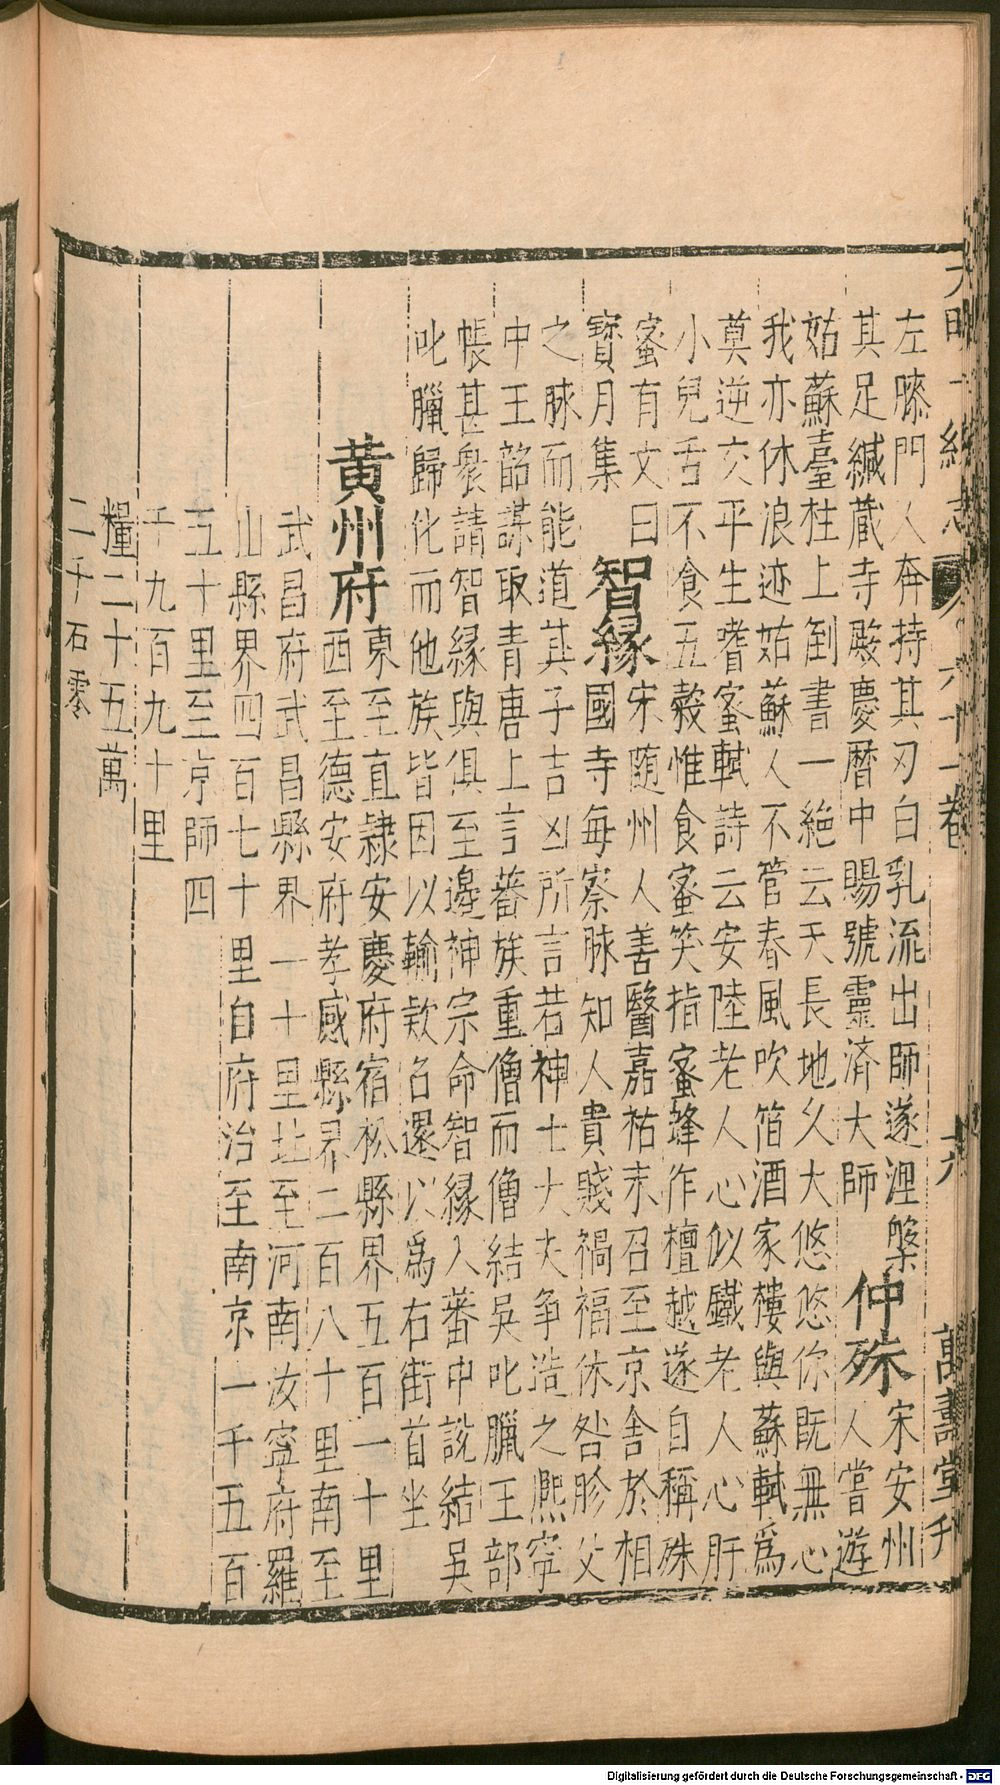 大明一統志 六十一卷 六 萬壽堂刊
左膝門人奔持其刃白乳流出師遂涅槃
其足緘藏寺殿慶曆中賜號靈濟大師
仲殊
宋安州
人嘗遊
姑蘇臺柱上倒書一絶云天長地久大悠悠你既無心
我亦休浪迹姑蘇人不管春風吹笛酒家樓與蘇軾爲
莫逆交平生嗜蜜軾詩云安陸老人心似鐵老人心肝
小兒舌不食五穀惟食蜜笑指蜜蜂作檀越遂自稱殊
蜜有文曰
寶月集
智縁
宋随州人善醫嘉祐末召至京舍於相
國寺每察脉知人貴賤禍福休咎胗父
之脉而能道其子吉凶所言若神士大夫争造之熈寧
中王韶謀取青唐上言蕃族重僧而僧結吳叱臘王部
帳甚衆請智縁與俱至邊神宗命智縁入蕃中說結吳
叱臘歸化而他族皆因以輸款召還以爲右街首坐
黄州府
東至直隷安慶府宿松縣界五百一十里
西至德安府孝感縣界二百八十里南至
武昌府武昌縣界一十里北至河南汝寧府羅
山縣界四百七十里自府治至南京一千五百
五十里至京師四
千九百九十里
糧二十五萬
二千石零
Digitalisierung gefördert durch die Deutsche Forschungsgemeinschaft - DFG